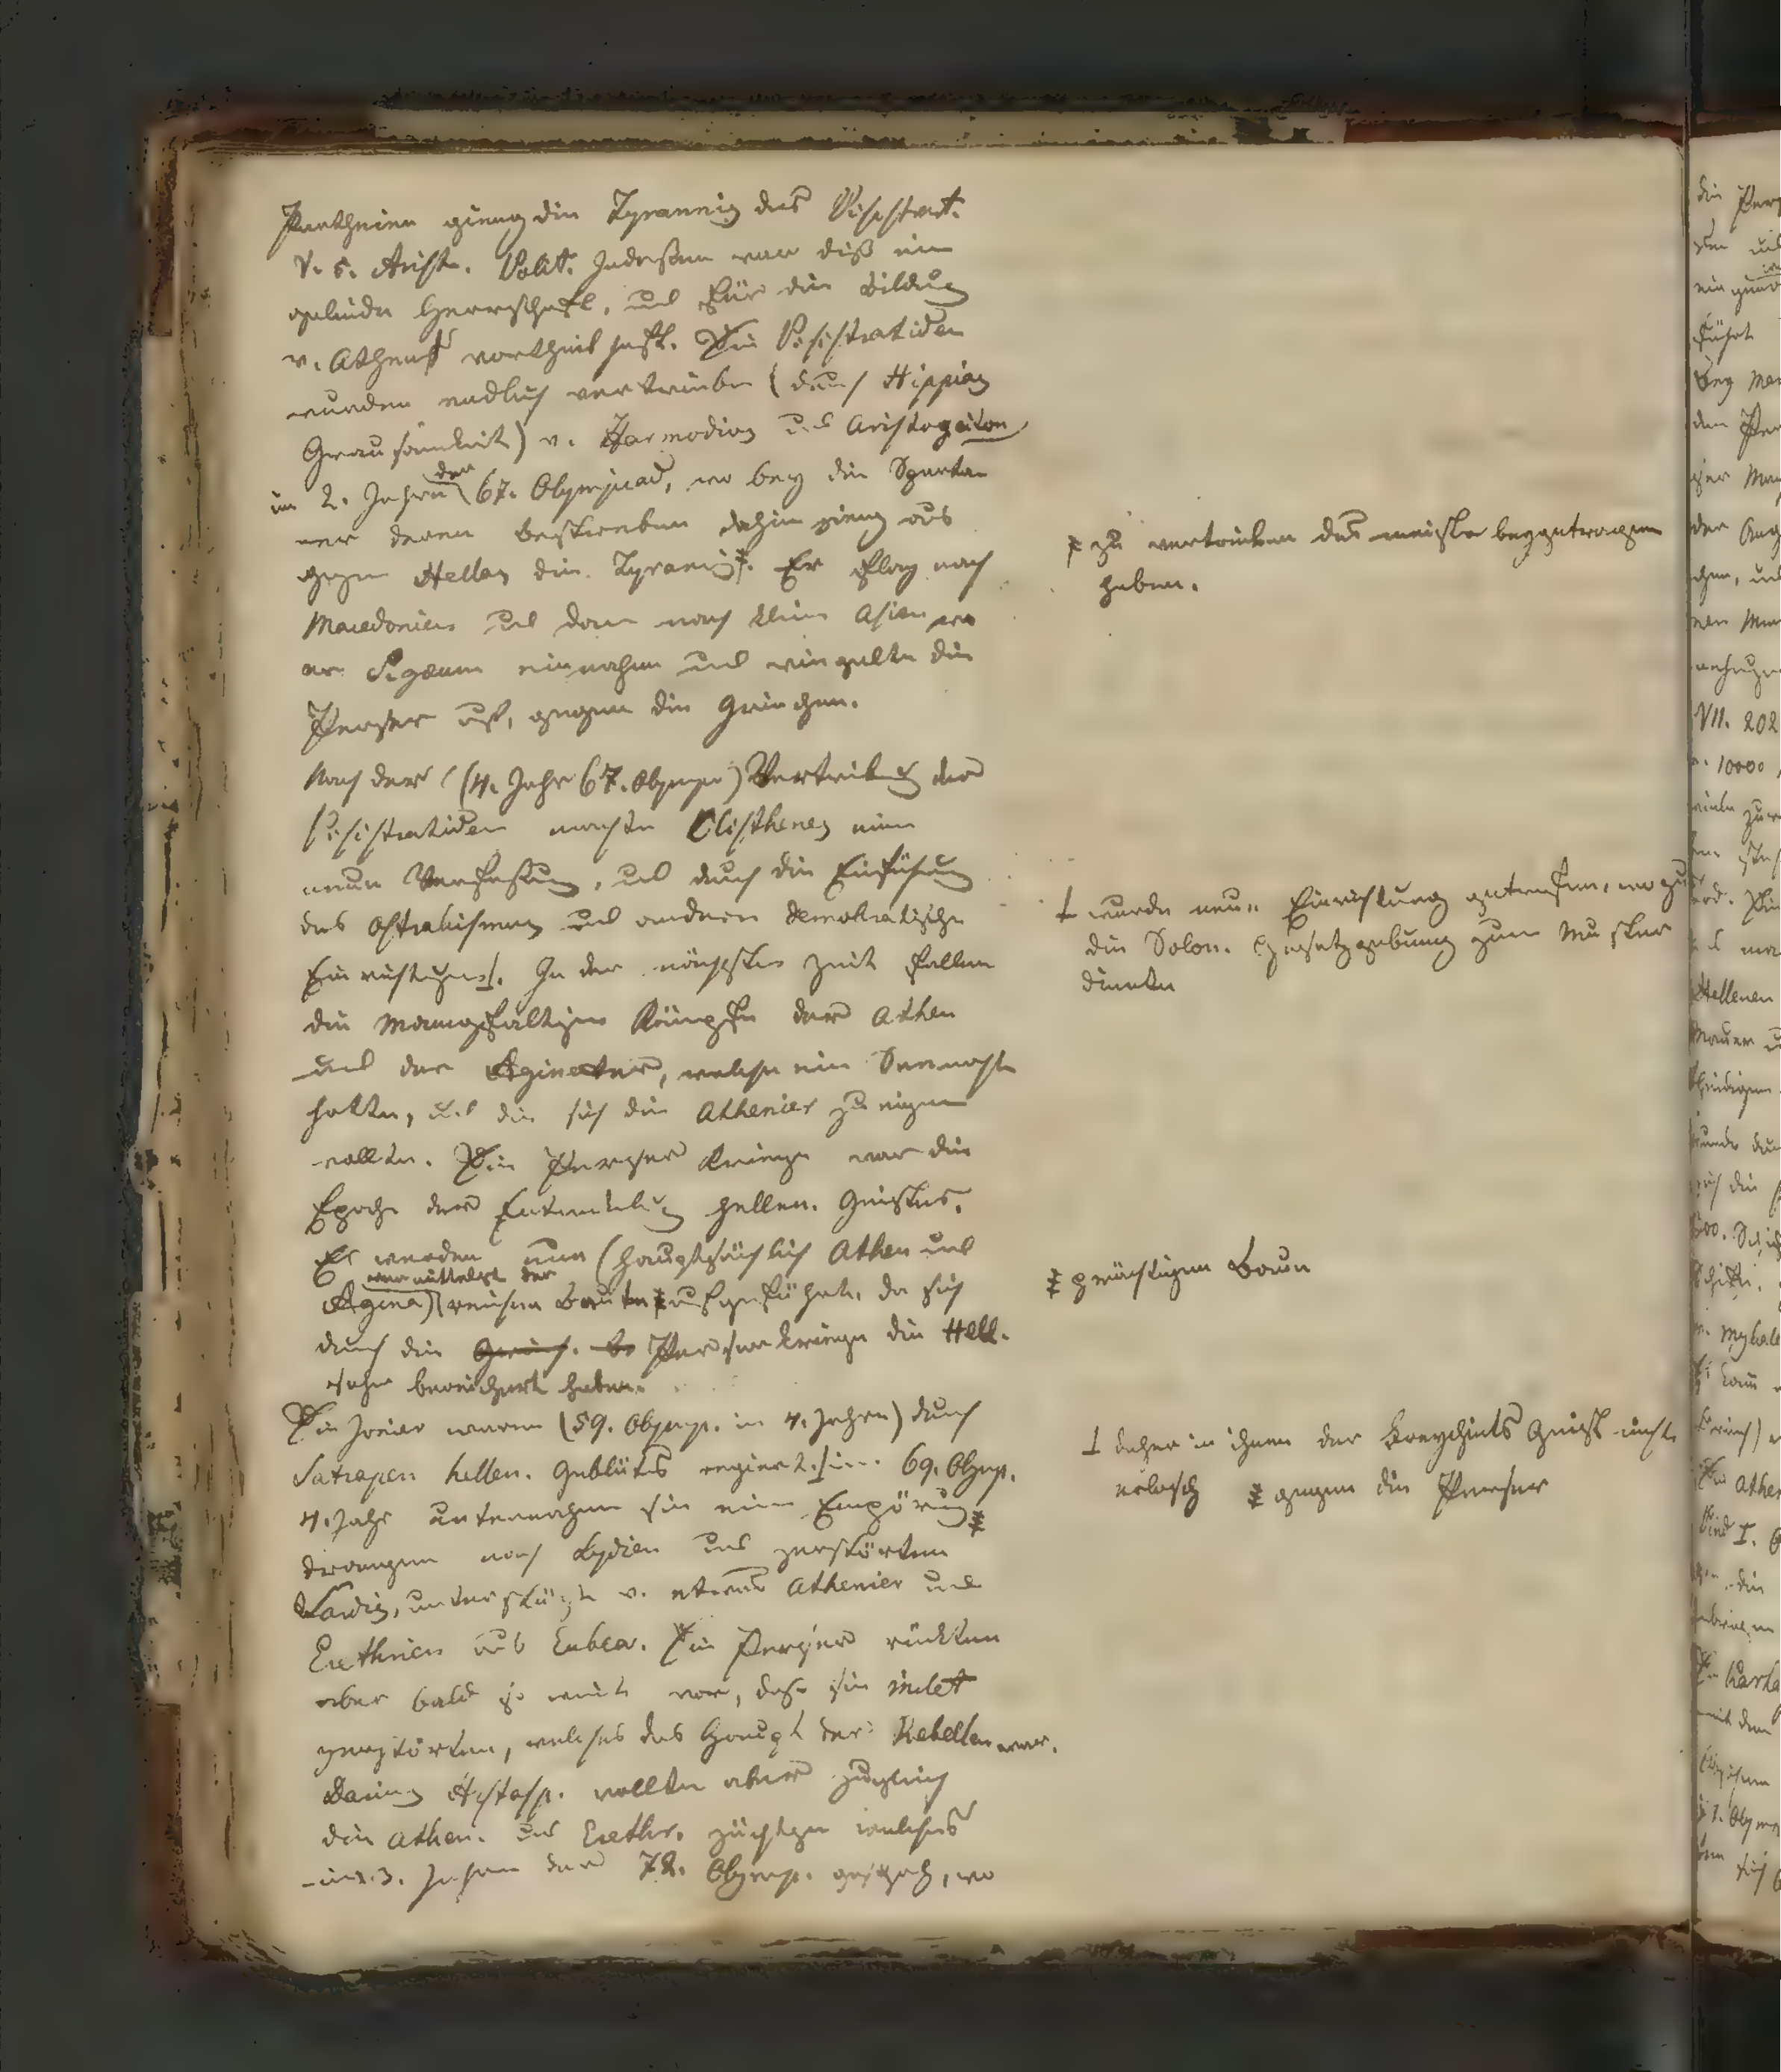 Partheien gieng die Tyrannis des Pisistrat.
V. 5. Arist. Polit. Indessen war diß eine
gelinde Herrschaft, und für die Bildung
v. Athen vortheilhaft. Die Pisistratiden
wurden endlich vertrieben (durch Hippias
Grausamkeit) v. Harmodios und Aristogeiton
im 2. Jahre der 67. Olympiad, wo bey die Sparta-
ner deren Bestreben dahin gieng aus
ganz Hellas die Tyrannis ‡. Er floh nach
Macedonien und dann nach klein Asien wo
er Sigæum einnahm und wiegelte die
Perser auf, gegen die Griechen.
Nach der (4. Jahr 67. Olymp.) Vertreibung der
Pisistratiden machte Clisthenes eine
neue Verfassung, und durch die Einführung
des Ostrakismus und andere demokratische
Einrichtungen ⊥. In der nächsten Zeit fallen
die Mannigfaltigen Kämpfe der Athen
und der Aegineter, welche eine Seemacht
hatten, und die sich die Athenier zu eigen
wollten. Die Perser Kriege war die
Epoche der Entwicklung hellen. Geistes.
Es werden nun (hauptsächlich Athen und
Aegina) vermittelst der reichen Beute ‡ aufgeführt, da sich
durch die Perserkriege die Hell.
sehr bereichert haben.
Die Jonier waren (59. Olymp. in 4. Jahre) durch
Satrapen hellen. Geblüts regiert ⊥ im 69. Olymp.
4. Jahr unternahmen sie eine Empörung ‡
drangen nach Lydien und zerstörten
Sardis, unterstützt v. etwas Athenier und
Erethrier aus Eubea. Die Perser rückten
aber bald so weit vor, daß sie Milet
zerstörten, welches das Haupt der Rebellen war.
Darius Hystasp. wollte aber zugleich
die Athen. und Erethr. züchtigen welches
im 3. Jahre der 72. Olymp. geschah, wo
‡ zu vertreiben das meiste beygetragen
haben.
⊥ wurde neue Einrichtung getroffen, wozu
die Solon. Gesetzgebung zum Muster
diente
‡ prächtigen Bauen
⊥ daher in ihnen der Freyheits Geist nicht
erlosch ‡ gegen die Perser